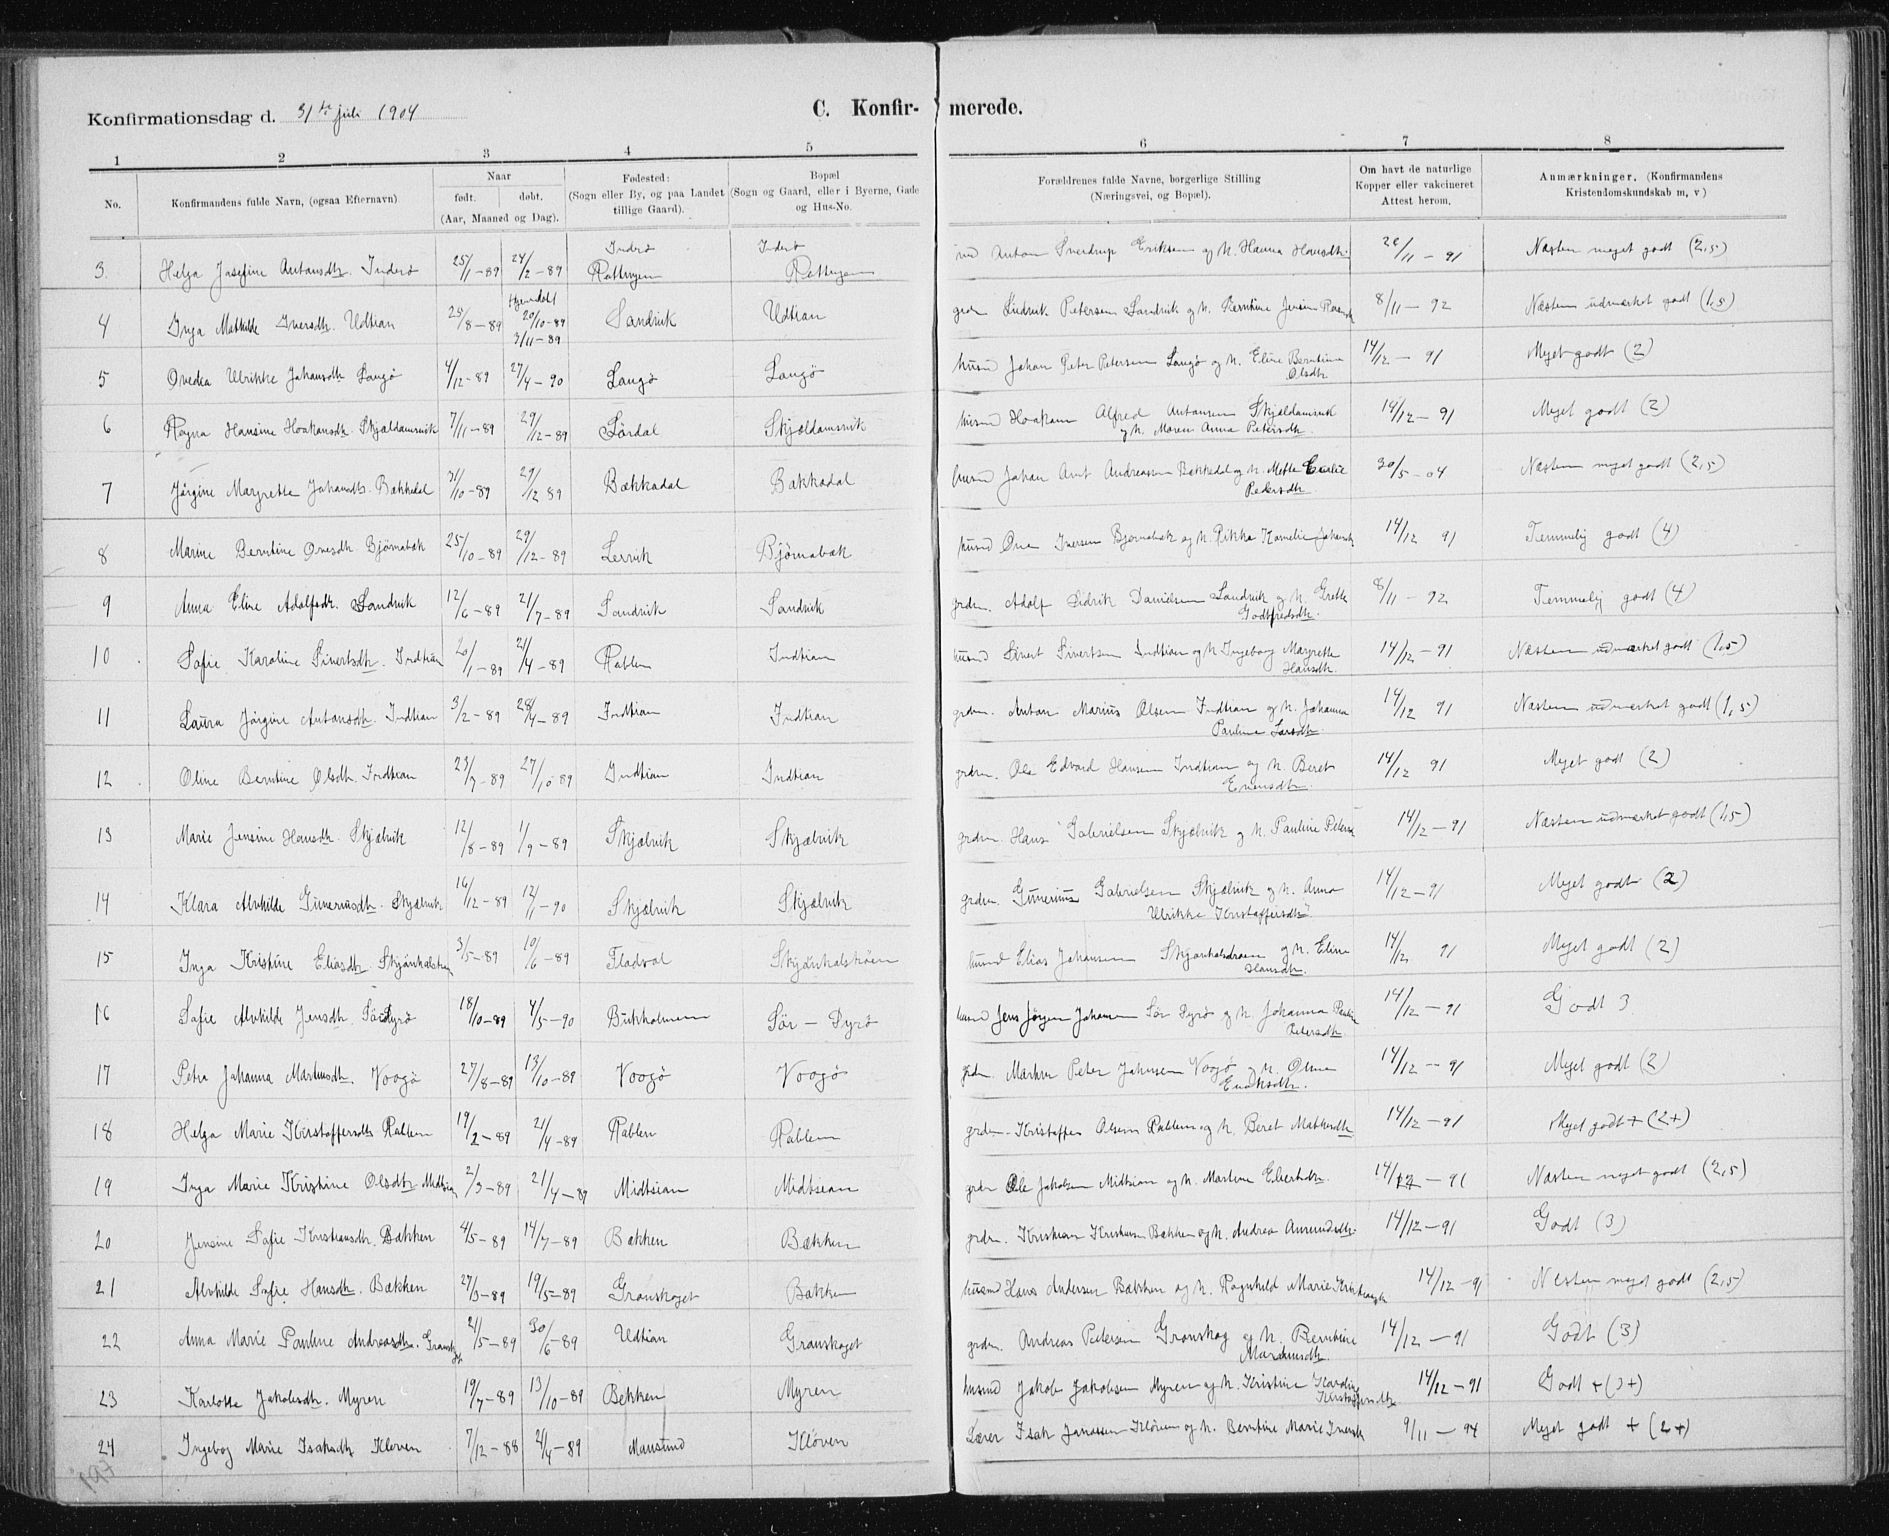 Konfirmationsdag d. 31te juli 1904 C. Konfirmerede.
1 2 3 4 5 6 7 8
No. Konfirmandens fulde Navn, (ogsaa Efternavn) Naar født. døbt. (Aar, Maaned og Dag). Fødested: (Sogn eller By, og paa Landet tillige Gaard). Bopæl (Sogn og Gaard, eller i Byerne, Gade og Hus-No. Forældrenes fulde Navne, borgerlige Stilling (Næringsvei, og Bopæl). Om havt de naturlige Kopper eller vakcineret Attest herom. Anmærkninger. (Konfirmandens Kristendomskundskab m, v)
3. Helga Josefine Antonsdtr. Inderø 25/1-89 24/2-89 Inderø Inderø Anton Sverdrup Eriksen og h. Hanna Hansdtr. /11-91 Næsten meget godt (2,5)
4 Inga Mathilde Iversdtr. Udtian 25/8-89 Hjemdøbt 20/10-89 3/11-89 Sandvik Udtian Petersen Sandvik og h. Berntine Jensine 8/11-92 Næsten udmærket godt (1,5)
5 Ovedia Ulrikke Johansdtr. Langø 4/12-89 27/4-90 Langø Langø husmd Johan Peter Petersen Langø og h. Eline Berntine Olsdtr 14/12-91 Meget godt (2)
6 Ragna Hansine Haakonsdtr. Skjældamsvik 7/11-89 29/12-89 Sørdal Skjældamsvik husmd Haakon Alfred Antonsen Skjældamsvik og h. Maren Anna Petersdtr. 14/12-91 Meget godt (2)
7 Jørgine Margrethe Johansdtr. Bækkadal 31/10-89 29/12 89 Bækkadal Bækkadal husmd Johan Arnt Andreassen Bækkadal og h. Mette Pedersdtr. 30/5-04 Næsten meget godt (2,5)
8 Marine Berntine Ovesdtr. Bjørnabæk 25/10-89 29/12-89 Lervik Bjørnabæk husmd Ove Iversen Bjørnabæk og h. Rikka Kornelie 14/12 91 Temmelig godt (4)
9 Anna Eline Adolfsdtr. Sandvik 12/6-89 21/7-89 Sandvik Sandvik grdm. Adolf Didrik Danielsen Sandvik og h. Grette Godtfredsdtr. 8/11-92 Temmelig godt (4)
10 Sofie Karoline Sivertsdtr. Indtian 20/1-89 21/4-89 Rablen Indtian husmd Sivert Sivertsen Indtian og h Ingeborg Margrette Hansdtr. 14/12-91 Næsten udmærket godt (1,5)
11 Laura Jørgine Antonsdtr. Indtian 3/2-89 28/4-89 Indtian Indtian grdm. Anton Marius Olsen Indtian og h. Johanna Pauline Larsdtr 14/12 91 Næsten udmærket godt (1,5)
12 Oline Berntine Olsdtr. Indtian 23/7-89 27/10 89 Indtian Indtian grdm. Ole Edvard Hansen Indtian og h. Beret 14/12 91 Meget godt (2)
13 Marie Jensine Hansdtr. Skjælvik 12/8-89 1/9-89 Skjælvik Skjælvik grdm. Hans Gabrielsen Skjælvik og h. Pauline 14/12-91 Næsten udmærket godt (1,5)
14 Klara Alvhilde Guneriusdtr. Skjælvik 16/12-89 12/1-90 Skjælvik Skjælvik grdm. Gunerius Gabrielsen Skjælvik og h. Anna Ulrikke Kristoffersdtr 14/12-91 Meget godt (2)
15 Inga Kristine Eliasdtr. 3/5-89 10/6-89 Fladval husmd Elias Johansen og h. Eline Hansdtr. 14/12 91 Meget godt (2)
16 Sofie Alvhilde Jensdtr. Sørdyrø 18/10-89 4/5-90 Bukholmen Sør-Dyrø husmd Jens Jørgen Johansen Sør Dyrø og h. Johanna Petersdtr 14/12-91 Godt 3
17 Petra Johanna Martinusdtr. Voogø 27/8-89 13/10-89 Voogø Voogø grdm. Peter Johnsen Voogø og h. Olina 14/12-91 Meget godt (2)
18 Helga Marie Kristoffersdtr Rablen 19/2-89 21/4-89 Rablen Rablen grdm. Kristoffer Olsen Rablen og h. Beret 14/12-91 Meget godt + (2+)
19 Inga Marie Kristine Olsdtr. Midtsian 2/3-89 21/4-89 Midtsian Midtsian grdm Ole Jakobsen Midtsian og h. Martine 14/12-91 Næsten meget godt (2,5)
20 Jensine Sofie Kristiansdtr. Bækken 4/5-89 14/7-89 Bækken Bækken grdm. Kristian Kristiansen Bækken og h. Andrea 14/12-91 Godt (3)
21 Alvhilde Sofie Hansdtr. Bækken 27/3-89 19/5-89 Granskoget Bækken husmd Hans Andersen Bækken og h. Ragnhild Marie 14/12-91 Næsten meget godt (2,5)
22 Anna Marie Pauline Andreasdtr. Granskoget 21/5-89 30/6-89 Udtian Granskoget grdm. Andreas Petersen Granskog og h. Berntine 14/12-91 Godt (3)
23 Karlotte Jakobsdtr. Myren 19/7-89 13/10-89 Bekken Myren husmd Jakob Jakobsen Myren og h. Kristine Kristoffersdtr 14/12-91 Godt + (3+)
24 Ingebog Marie Isaksdtr Kløven 7/12-88 2/4-89 Mausund Kløven Lærer Isak Jonassen Kløven og h. Berntine Marie 9/11-94 Meget godt + (2+)